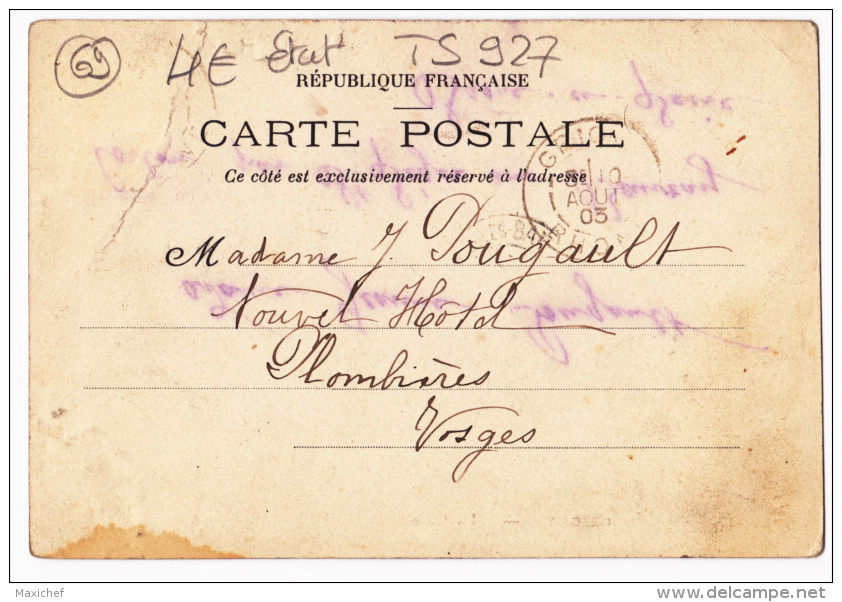 69
4€ Etat TS 927
RÉPUBLIQUE FRANÇAISE
CARTE POSTALE
Ce côté est exclusivement réservé à l'adresse
10
AOUT
03
LES-BAINS
Madame J. Pougault
Nouvel Hôtel
Plombières
Vosges
Maxichef
delcampe.net